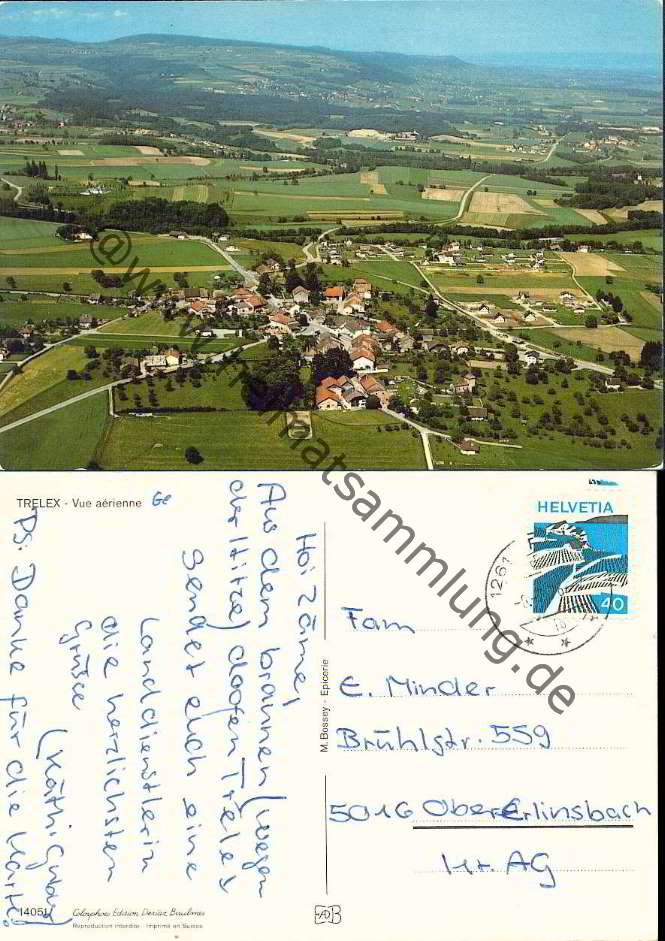 @www.Heimatsammlung.de
TRELEX - Vue aérienne Ge
HELVETIA
40
1261
Hoi Zäme,
Aus dem braunen (wegen
der Hitze) doofen Trélex
sendet euch eine
Landdienstlerin
die herzlichsten
Grüsse
(Käthi
PS: Danke für die Karte!
M. Bossey - Epicerie
Fam
E. Minder
Brühlstr. 559
5016 ObereErlinsbach
Kt. AG
14051
Colorphoto Edition Deriaz Baulmes
Reproduction interdite - Imprimé en Suisse